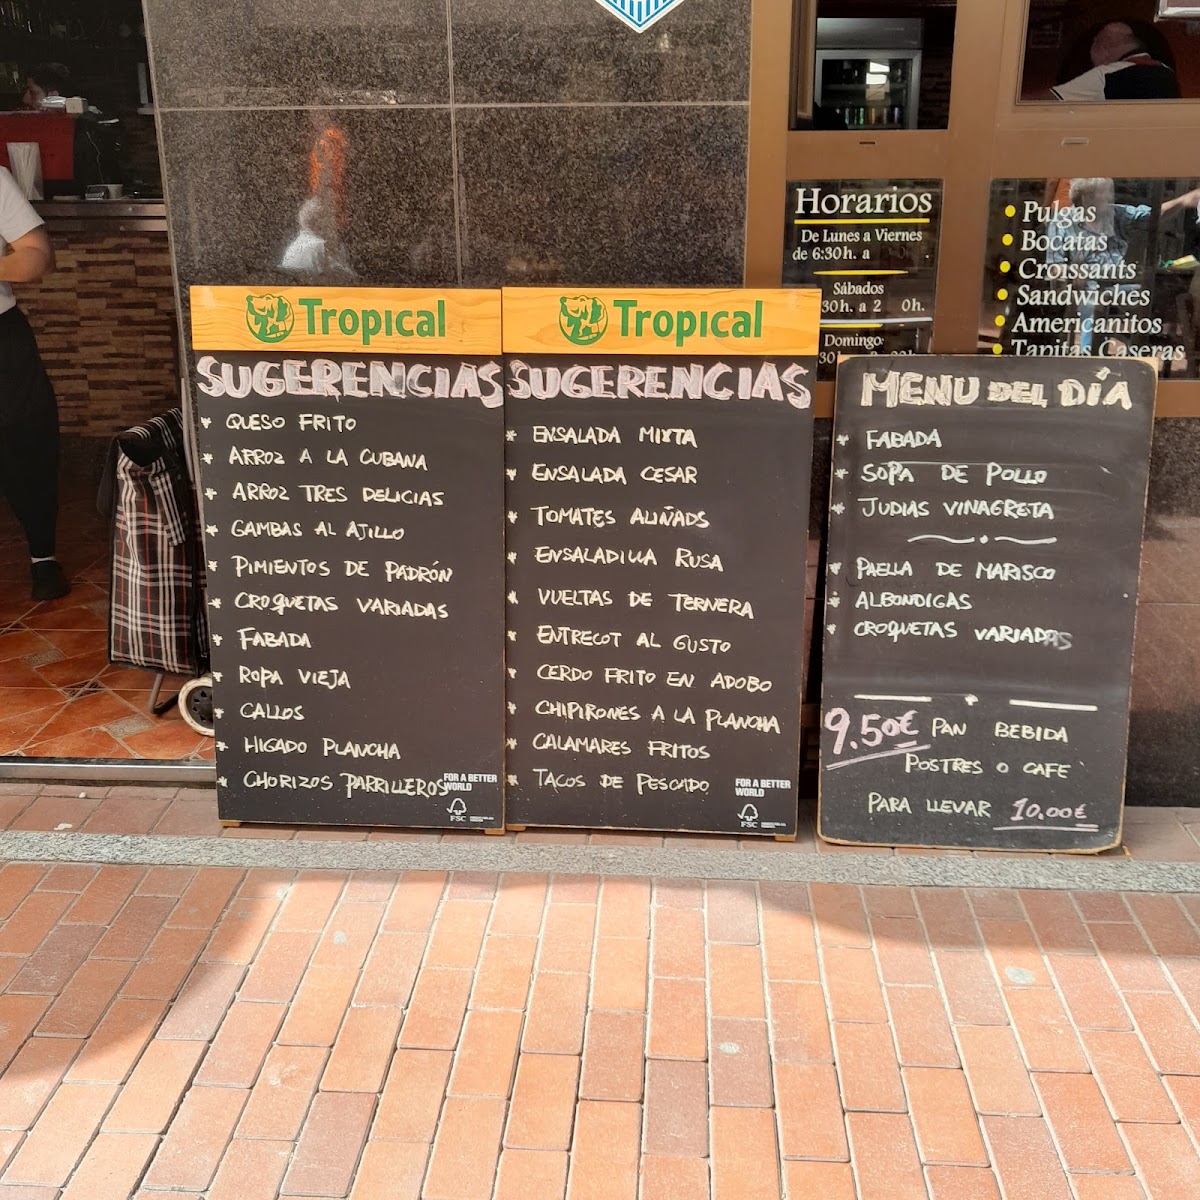 Tropical
SUGERENCIAS
* QUESO FRITO
* ARROZ A LA CUBANA
* ARROZ TRES DELICIAS
* GAMBAS AL AJILLO
* PIMIENTOS DE PADRÓN
* CROQUETAS VARIADAS
* FABADA
* ROPA VIEJA
* CALLOS
* HIGADO PLANCHA
* CHORIZOS PARRILLEROS
FOR A BETTER
WORLD
FSC
Tropical
SUGERENCIAS
* ENSALADA MIXTA
* ENSALADA CESAR
* TOMATES ALIÑADS
* ENSALADILLA RUSA
* VUELTAS DE TERNERA
* ENTRECOT AL GUSTO
* CERDO FRITO EN ADOBO
* CHIPIRONES A LA PLANCHA
* CALAMARES FRITOS
* TACOS DE PESCADO
FOR A BETTER
WORLD
FSC
Horarios
De Lunes a Viernes
de 6:30h. a
Sábados
30h. a 2 0h.
Domingo
• Pulgas
• Bocatas
• Croissants
• Sandwiches
• Americanitos
• Tapitas Caseras
MENU DEL DÍA
* FABADA
* SOPA DE POLLO
* JUDIAS VINAGRETA
* PAELLA DE MARISCO
* ALBONDIGAS
* CROQUETAS VARIADAS
9.50€ PAN BEBIDA
POSTRES O CAFE
PARA LLEVAR 10,00€